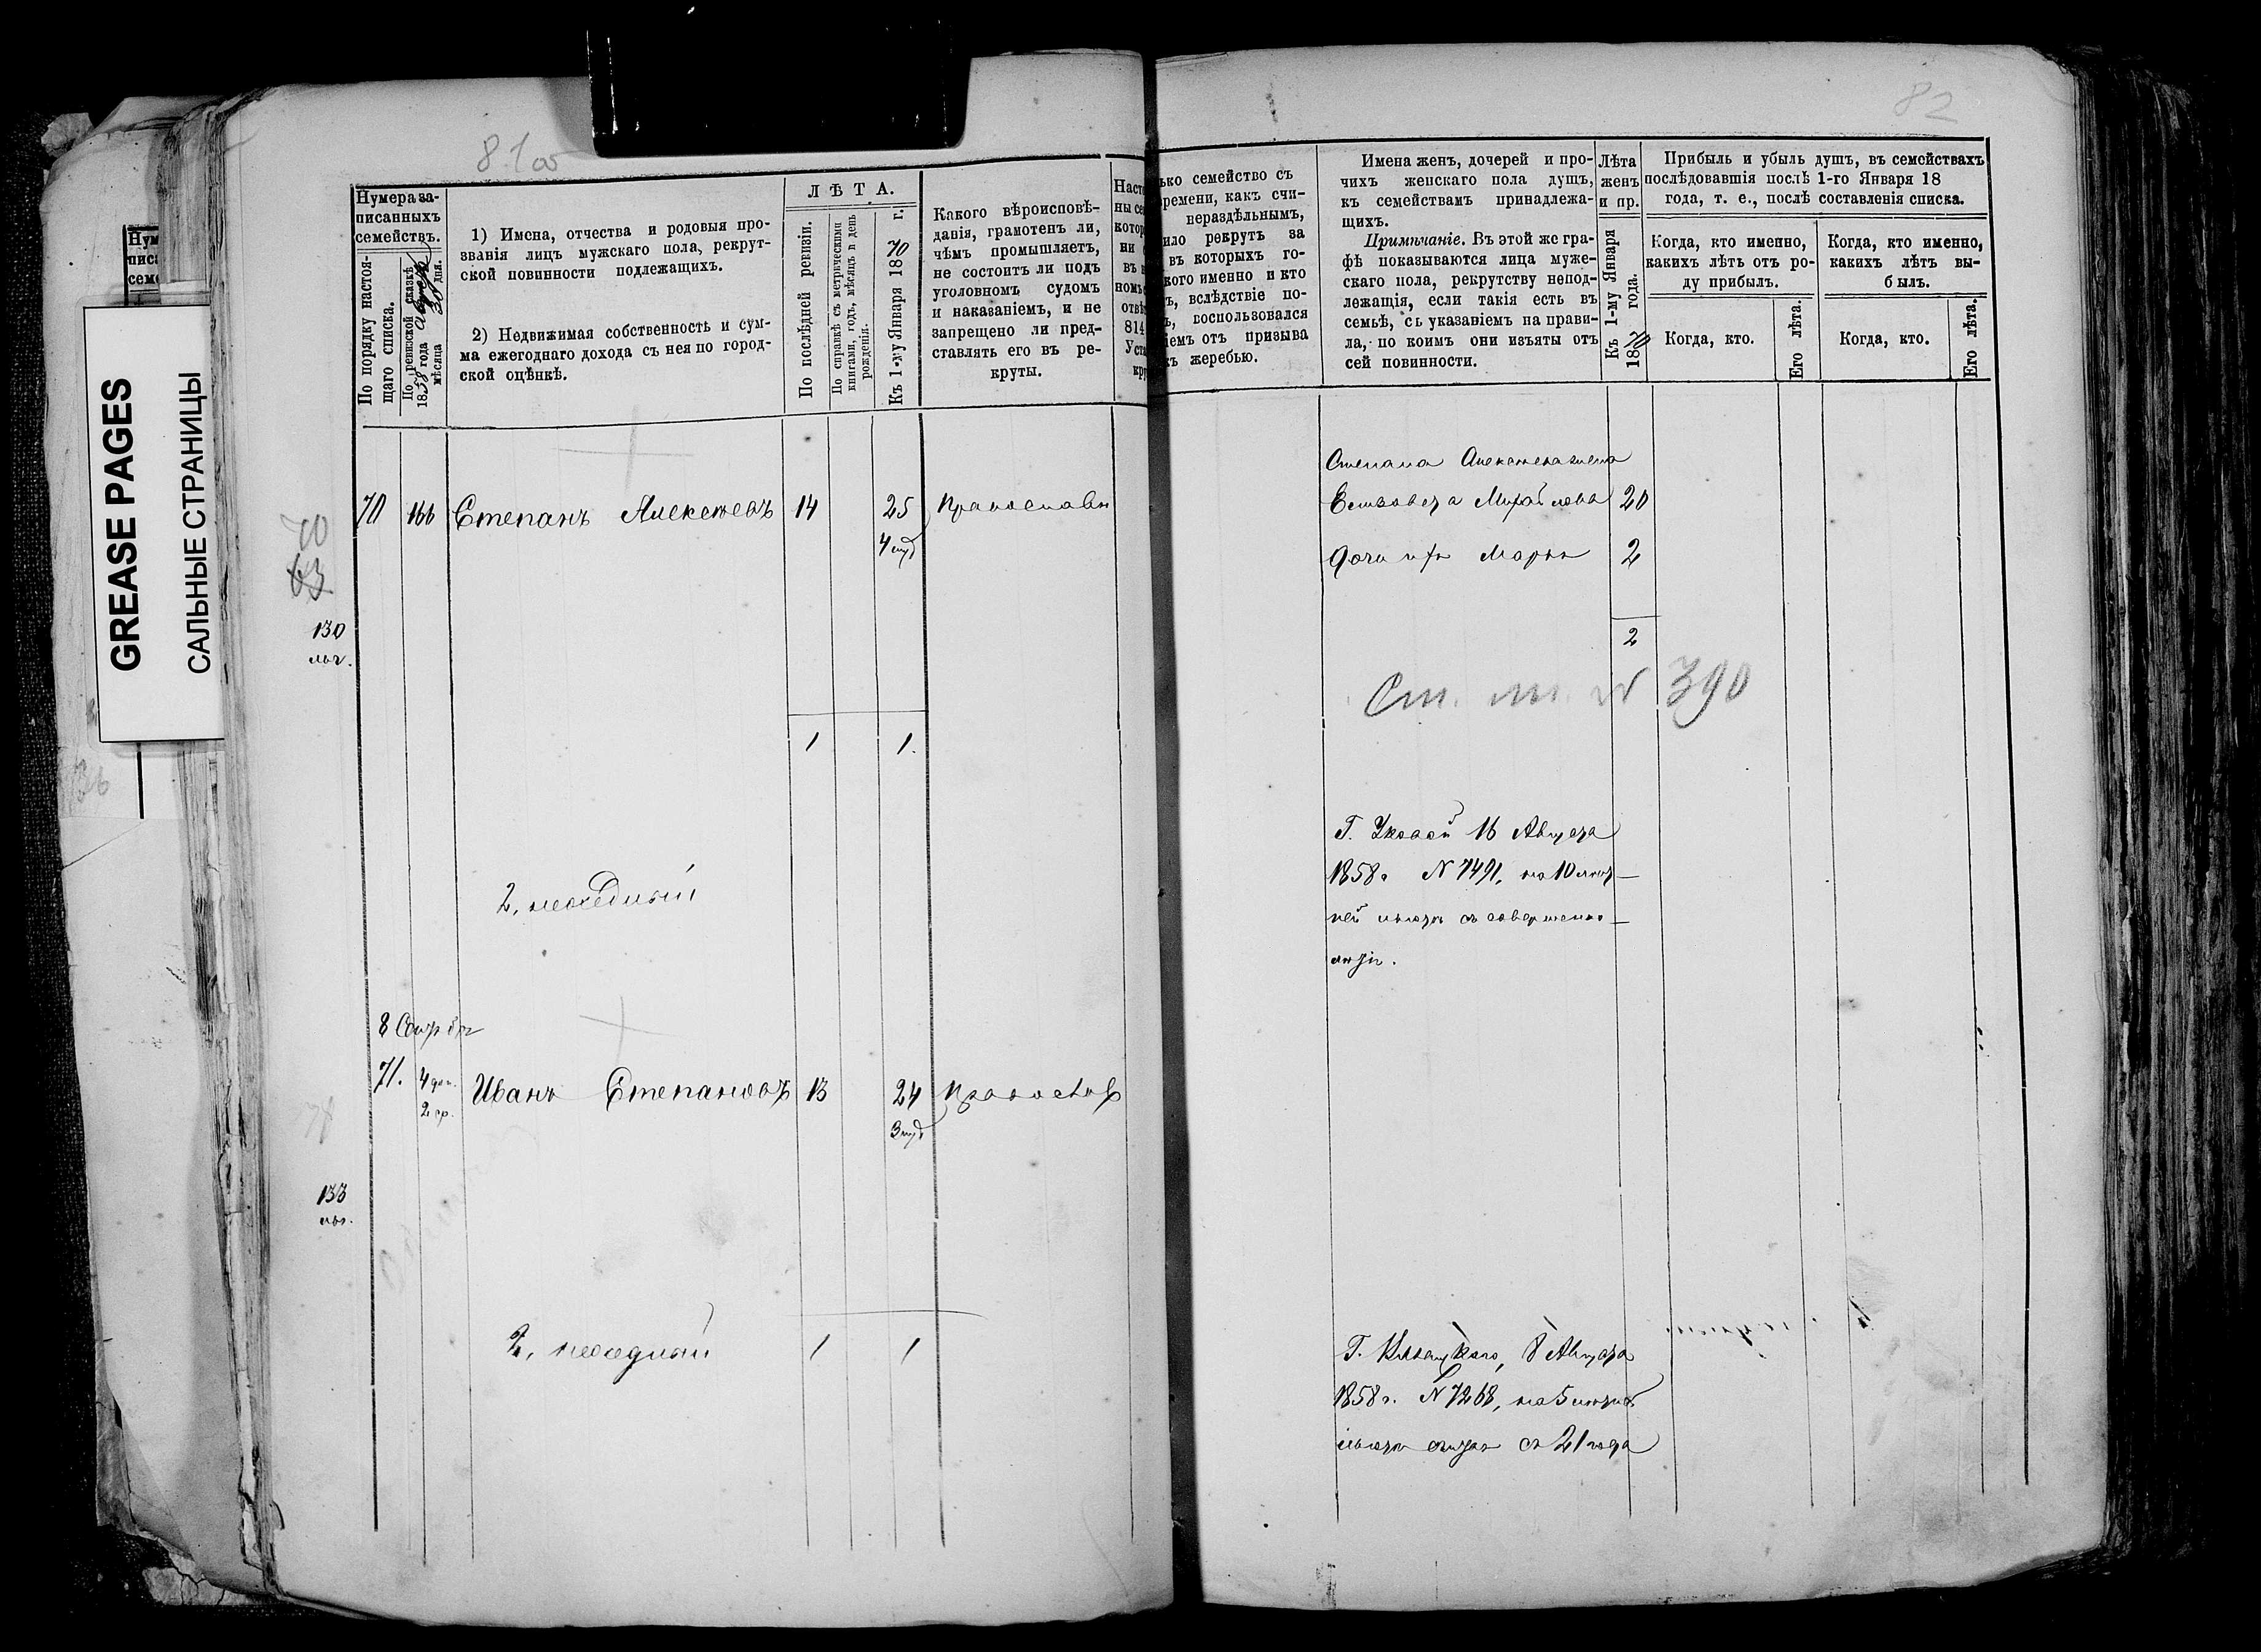 GREASE PAGES
САЛЬНЫЕ СТРАНИЦЫ
81об
82
Нумера за-
писанныхъ
семействъ.
По порядку настоя-
щаго списка.
По ревизской сказкѣ
1858 года
мѣсяца 30 дня.
1) Имена, отчества и родовыя про-
званія лицъ мужскаго пола, рекрут-
ской повинности подлежащихъ.
2) Недвижимая собственность и сум-
ма ежегоднаго дохода съ нея по город-
ской оцѣнкѣ.
ЛѢТА.
По послѣдней ревизіи.
По справкѣ съ метрическими
книгами, годъ, мѣсяцъ и день
рожденія.
Къ 1-му Января 1870 г.
Какого вѣроисповѣ-
данія, грамотенъ ли,
чѣмъ промышляетъ,
не состоитъ ли подъ
уголовномъ судомъ
и наказаніемъ, и не
запрещено ли пред-
ставлять его въ ре-
круты.
ько семейство съ
ремени, какъ счи-
нераздѣльнымъ,
ило рекрутъ за
въ которыхъ го-
кого именно и кто
ъ, вслѣдствіе по-
ъ, воспользовался
іемъ отъ призыва
къ жеребью.
Имена женъ, дочерей и про-
чихъ женскаго пола душъ,
къ семействамъ принадлежа-
щихъ.
Примѣчаніе. Въ этой же гра-
фѣ показываются лица муже-
скаго пола, рекрутству непод-
лежащія, если такія есть въ
семьѣ, съ указаніемъ на прави-
ла, по коимъ они изъяты отъ
сей повинности.
Лѣта
женъ
и пр.
Къ 1-му Января
1870 года.
Прибыль и убыль душъ, въ семействахъ
послѣдовавшія послѣ 1-го Января 18
года, т. е., послѣ составленія списка.
Когда, кто именно,
какихъ лѣтъ отъ ро-
ду прибылъ.
Когда, кто.
Его лѣта.
Когда, кто именно,
какихъ лѣтъ вы-
былъ.
Когда, кто.
Его лѣта.
70 166 Степанъ Алексѣевъ 14 25 Православн
Степана Алексѣева жена
Елизавета Михайлова 20
дочь ихъ Марья 2
70
63
130
2
Ст. № 390
1 1.
Г. 16 Августа
1858 г. № 7491, на 10 лѣт-
ней съ совершенно-
лѣтія.
2, неоседлый
71. Иванъ Степановъ 13 24 Правосла
2 ср.
133
2, неоседлый 1 1
Г. 8 Августа
1858 г. № 7268, на 5
съ 21 года